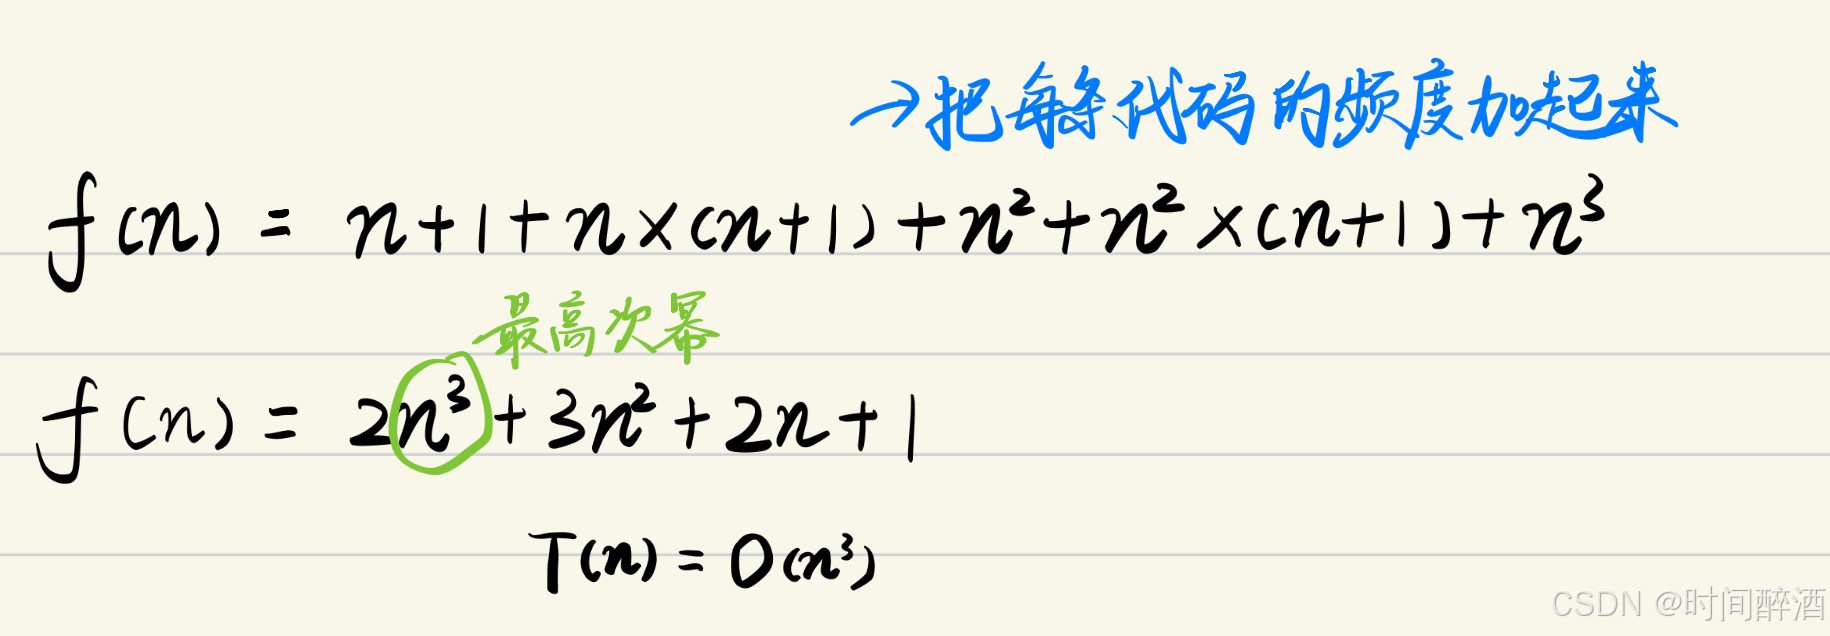 →把每条代码的频度加起来
f(n) = n+1+n×(n+1)+n²+n²×(n+1)+n³
最高次幂
f(n) = 2n³+3n²+2n+1
T(n) = O(n³)
CSDN @时间醉酒